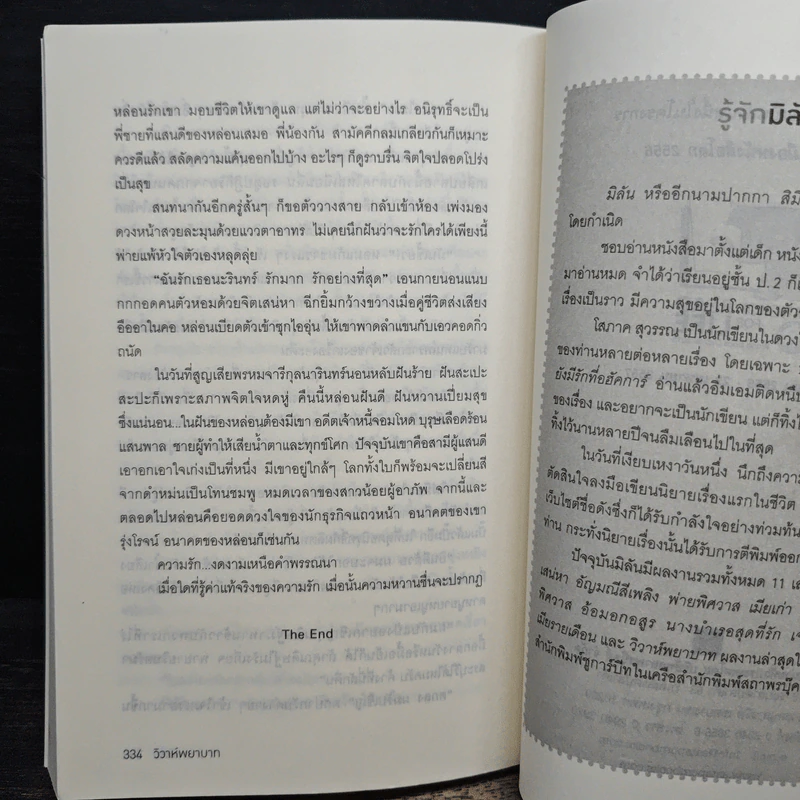 หล่อนรักเขา มอบชีวิตให้เขาดูแล แต่ไม่ว่าจะอย่างไร อนิรุทธิ์จะเป็น
พี่ชายที่แสนดีของหล่อนเสมอ พี่น้องกัน สามัคคีกลมเกลียวกันก็เหมาะ
ควรดีแล้ว สลัดความแค้นออกไปบ้าง อะไรๆ ก็ดูราบรื่น จิตใจปลอดโปร่ง
เป็นสุข
สนทนากันอีกครู่สั้นๆ ก็ขอตัววางสาย กลับเข้าห้อง เพ่งมอง
ดวงหน้าสวยละมุนด้วยแววตาอาทร ไม่เคยนึกฝันว่าจะรักใครได้เพียงนี้
พ่ายแพ้หัวใจตัวเองหลุดลุ่ย
“ฉันรักเธอนะรินทร์ รักมาก รักอย่างที่สุด” เอนกายนอนแนบ
กกกอดคนตัวหอมด้วยจิตเสน่หา ฉีกยิ้มกว้างขวางเมื่อคู่ชีวิตส่งเสียง
อืออาในคอ หล่อนเบียดตัวเข้าซุกไออุ่น ให้เขาพาดลำแขนกับเอวคอดกิ่ว
ถนัด
ในวันที่สูญเสียพรหมจารีกุลนารินทร์นอนหลับฝันร้าย ฝันสะเปะ
สะปะก็เพราะสภาพจิตใจหดหู่ คืนนี้หล่อนฝันดี ฝันหวานเปี่ยมสุข
ซึ่งแน่นอน...ในฝันของหล่อนต้องมีเขา อดีตเจ้าหนี้จอมโหด บุรุษเลือดร้อน
แสนพาล ชายผู้ทำให้เสียน้ำตาและทุกข์โศก ปัจจุบันเขาคือสามีผู้แสนดี
เอาอกเอาใจเก่งเป็นที่หนึ่ง มีเขาอยู่ใกล้ๆ โลกทั้งใบก็พร้อมจะเปลี่ยนสี
จากดำหม่นเป็นโทนชมพู หมดเวลาของสาวน้อยผู้อาภัพ จากนี้และ
ตลอดไปหล่อนคือยอดดวงใจของนักธุรกิจแถวหน้า อนาคตของเขา
รุ่งโรจน์ อนาคตของหล่อนก็เช่นกัน
ความรัก...งดงามเหนือคำพรรณนา
เมื่อใดที่รู้ค่าแท้จริงของความรัก เมื่อนั้นความหวานชื่นจะปรากฏ
The End
334 วิวาห์พยาบาท
รู้จักมิลัน
มิลัน หรืออีกนามปากกา
โดยกำเนิด
ชอบอ่านหนังสือมาตั้งแต่เด็ก
มาอ่านหมด จำได้ว่าเรียนอยู่ชั้น ป.2
เรื่องเป็นราว มีความสุขอยู่ในโลกของ
โสภาค สุวรรณ เป็นนักเขียนใน
ของท่านหลายต่อหลายเรื่อง โดยเฉพาะ
ยังมีรักที่อฮัคการ์ อ่านแล้วอิ่มเอมติดหนึบ
ของเรื่อง และอยากจะเป็นนักเขียน แต่ก็ทิ้ง
ทิ้งไว้นานหลายปีจนลืมเลือนไปในที่สุด
ในวันที่เงียบเหงาวันหนึ่ง นึกถึง
ตัดสินใจลงมือเขียนนิยายเรื่องแรกในชีวิต
เว็บไซต์ชื่อดังซึ่งก็ได้รับกำลังใจอย่างท่วมท้น
ท่าน กระทั่งนิยายเรื่องนั้นได้รับการตีพิมพ์
ปัจจุบันมิลันมีผลงานรวมทั้งหมด 11
เสน่หา อัญมณีสีเพลิง พ่ายพิศวาส เมียเก่า
พิศวาส อ้อมอกอสูร นางบำเรอสุดที่รัก
เมียรายเดือน และ วิวาห์พยาบาท ผลงานล่าสุด
สำนักพิมพ์ชูการ์บีทในเครือสำนักพิมพ์สถาพรบุ๊ค